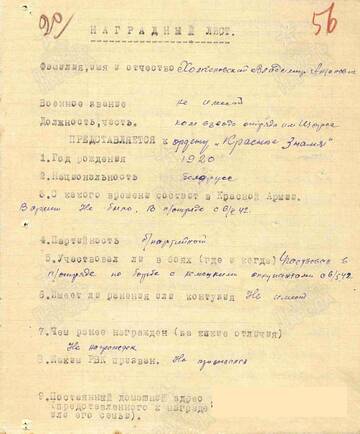 56
НАГРАДНЫЙ ЛИСТ.
Фамилия, имя и отчество Владимир Антонович
Военное звание не имеет
Должность, часть. ком. взвода отряда им.
ПРЕДСТАВЛЯЕТСЯ к ордену „Красное Знамя"
1.Год рождения 1920
2.Национальность Белорус
3.С какого времени состоит в Красной Армии.
В армии не было. В п/отряде с 42.
4.Партийность б/партийный
5.Участвовал ли в боях (где и когда) Участвовал в
п/отряде по борьбе с немецкими оккупантами с 42.
6.Имеет ли ранения или контузия Не имеет
7.Чем ранее награжден (за какие отличия)
Не награжден
8.Каким РВК призван. Не призывался
9.Постоянный домашний адрес
(представленного к награде
или его семьи).